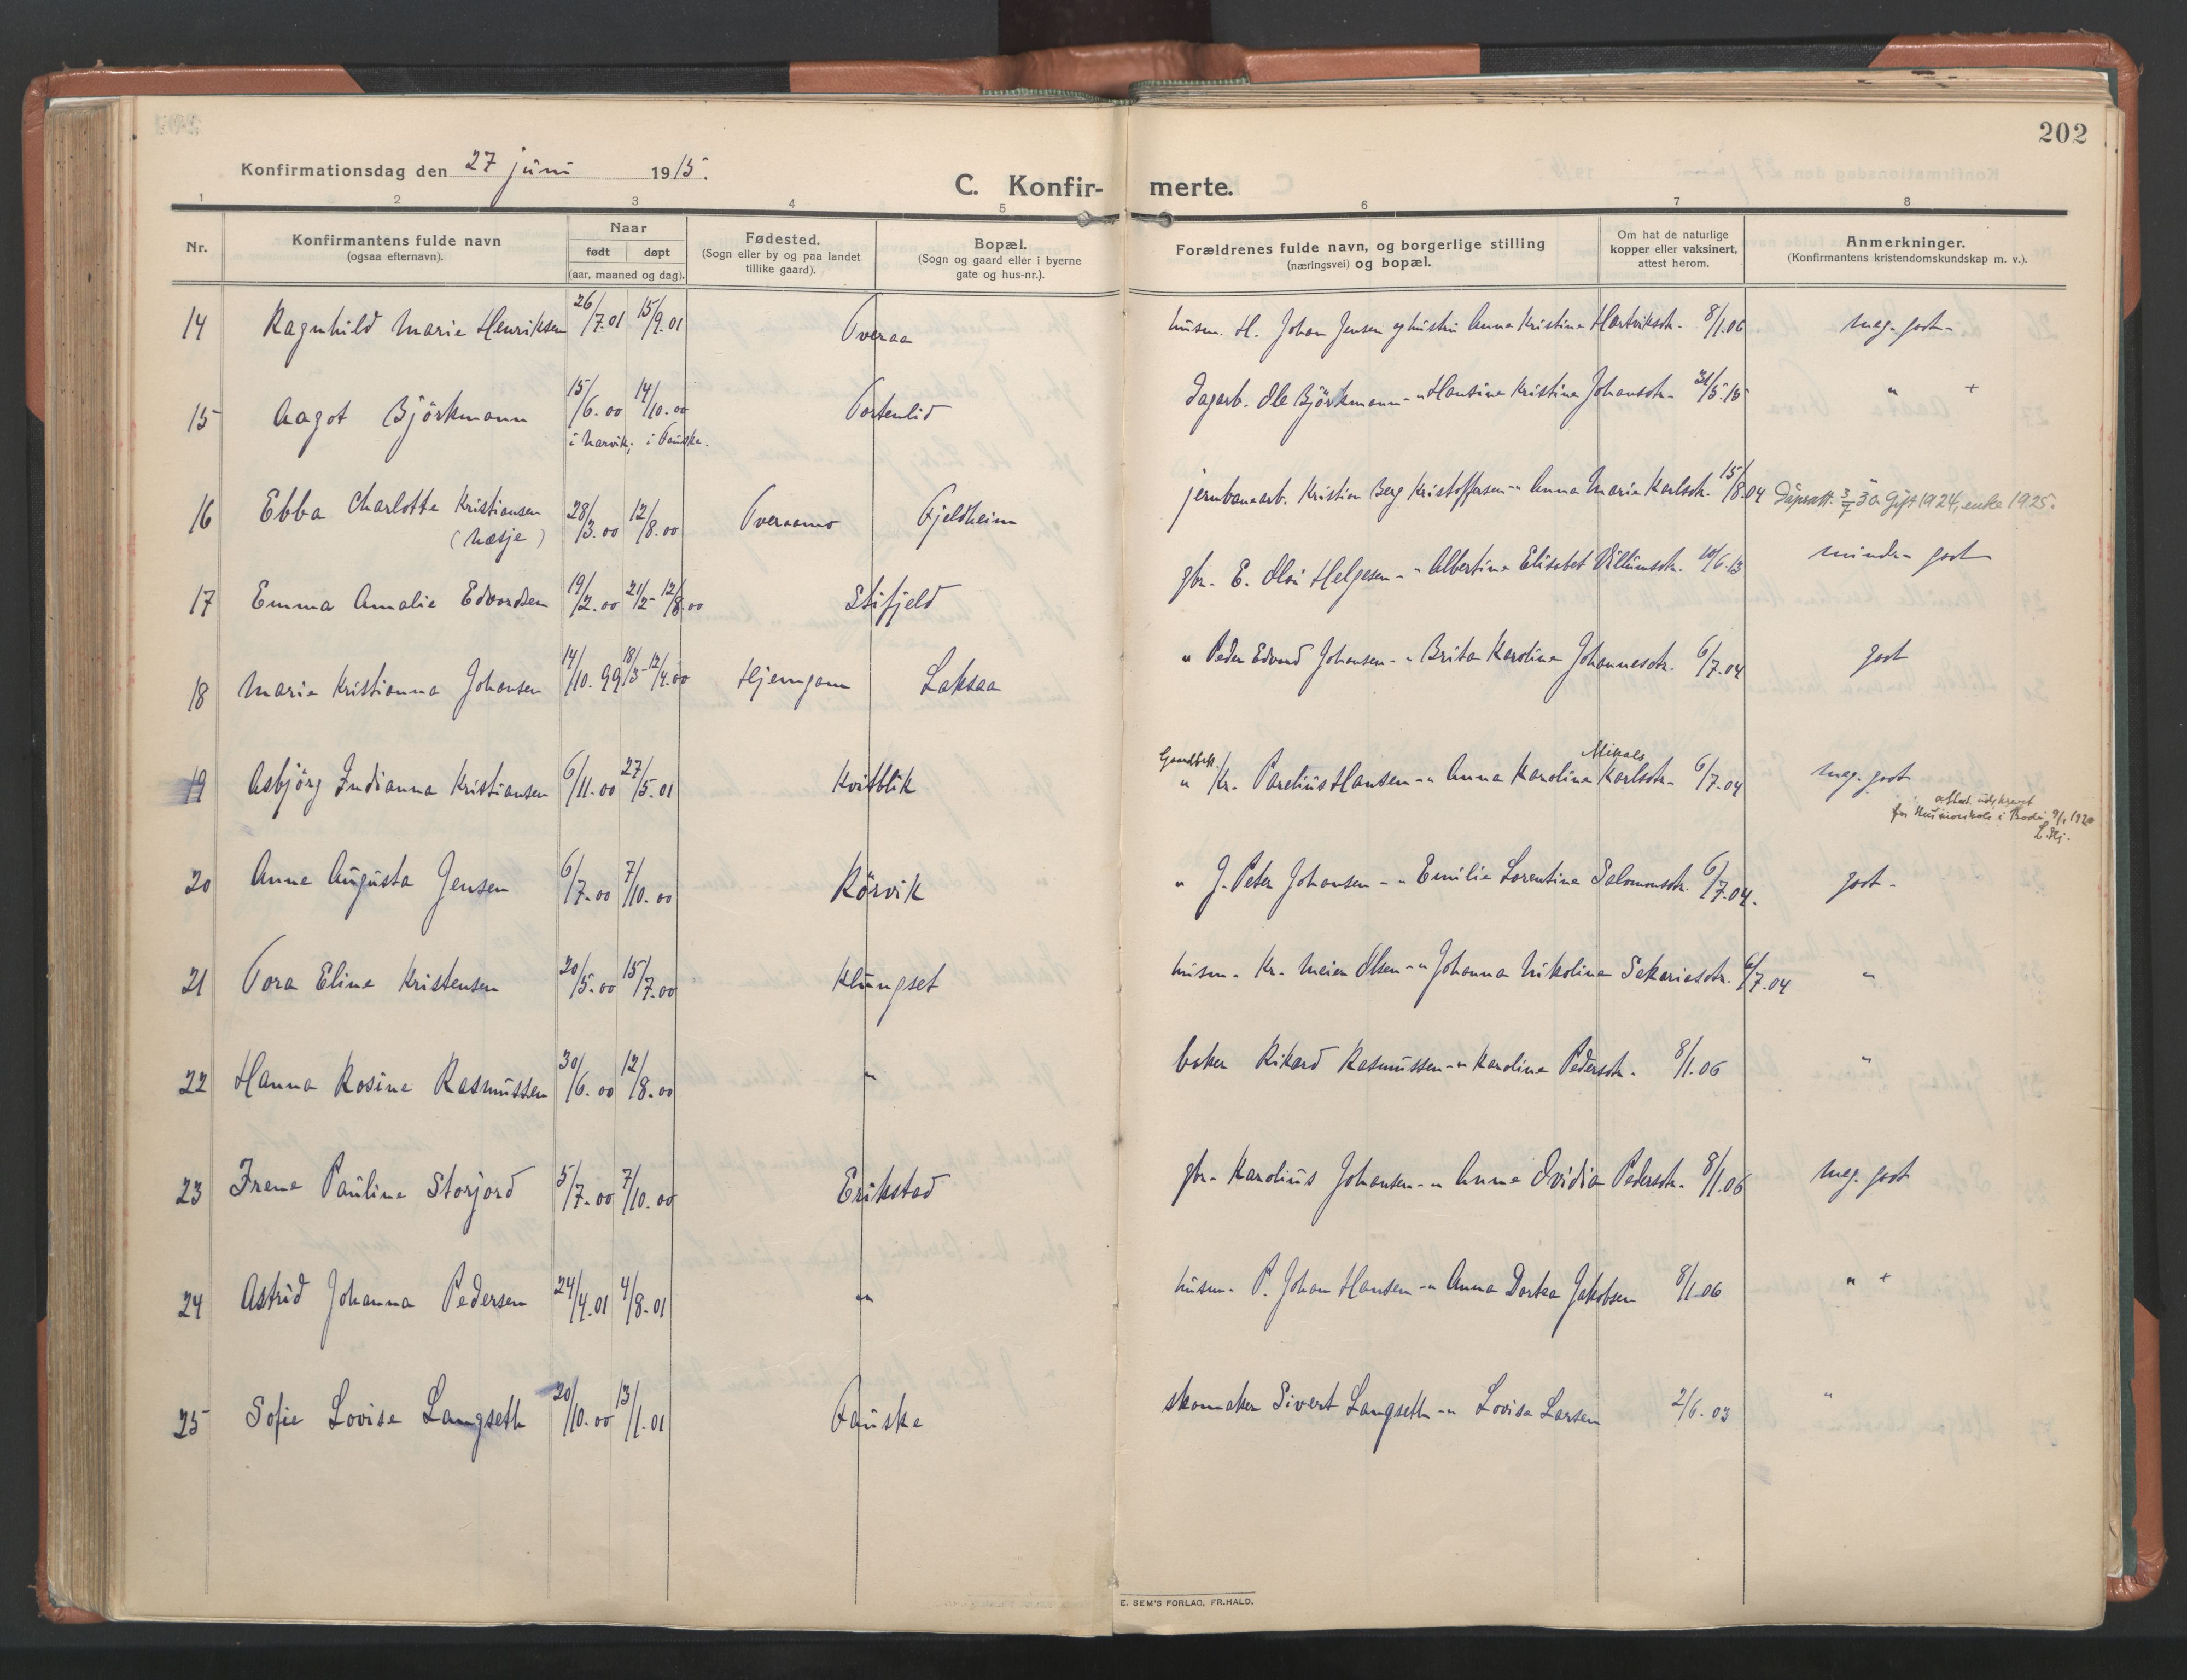 202
Konfirmationsdag den 27 juni 1915.
C. Konfir- merte.
1 2 3 4 5 6 7 8
Nr. Konfirmantens fulde navn (ogsaa efternavn). Naar født døpt (aar, maaned og dag). Fødested. (Sogn eller by og paa landet tillike gaard). Bopæl. (Sogn og gaard eller i byerne gate og hus-nr.). Forældrenes fulde navn, og borgerlige stilling (næringsvei) og bopæl. Om hat de naturlige kopper eller vaksinert, attest herom. Anmerkninger. (Konfirmantens kristendomskundskap m. v.).
14 Ragnhild Marie Henriksen 26/7.01 15/9.01 Tveraa husm. H. Johan Jensen og hustru Anna Kristine Hartviksdtr. 8/1.06 meg. godt
15 Aagot Björkmann 15/6.00 14/10.00 Tortenlid dagarb. Ole Björkmann - " Hansine Kristine Johansdtr. 31/5.15 " +
i Narvik; i Fauske.
16 Ebba Charlotte Kristiansen 28/3.00 12/8.00 Tveraamo Fjeldheim jernbanearb. Kristian Berg Kristoffersen - " Anna Marie Karlsdtr. 15/8.04 " Dåpsatt. 3/7 30. Gift 1924, enke 1925.
(Næsje)
17 Emma Amalie Edvardsen 19/2.00 21/2 - 12/8.00 Stifjeld gbr. E. Olai Helgesen - " Albertine Elisabet Villumsdtr. 10/6.13 mindre godt
18 Marie Kristianna Johansen 14/10.99 18/3 - 12/4.00 Hjemgam Laksaa " Peder Edvard Johansen - " Brita Karoline Johannesdtr. 6/7.04 godt
19 Asbjörg Indianna Kristiansen 6/11.00 27/5.01 Kvitblik " Kr. Parelius Hansen - " Anna Karoline Mikals Karlsdtr. 6/7.04 meg. godt
attest utskrevet
for Husmorskole i Bodø 9/1 1920
20 Anna Augusta Jensen 6/7.00 7/10.00 Rörvik " J. Peter Johansen - " Emilie Lorentine Salomonsdtr. 6/7.04. godt
21 Tora Eline Kristensen 20/5.00 15/7.00 Klungset husm. Kr. Meier Olsen - " Johanna Nikoline Sakariasdtr. 6/7.04 "
22 Hanna Rosine Rasmussen 30/6.00 12/8.00 " baker Rikard Rasmussen - " Karoline Pedersdtr. 8/1.06 "
23 Irene Pauline Storjord 5/7.00 7/10.00 Erikstad gbr. Karolius Johansen - " Anne Ovidia Pedersdtr. 8/1.06 meg. godt
24 Astrid Johanna Pedersen 24/4.01 4/8.01 " husm. P. Johan Hansen - " Anna Dortea Jakobsen 8/1.06 " +
25 Sofie Lovise Langseth 20/10.00 13/1.01 Fauske skomaker Sivert Langseth - " Lovise Larsen 2/6.03 "
E. SEM'S FORLAG, FR.HALD.